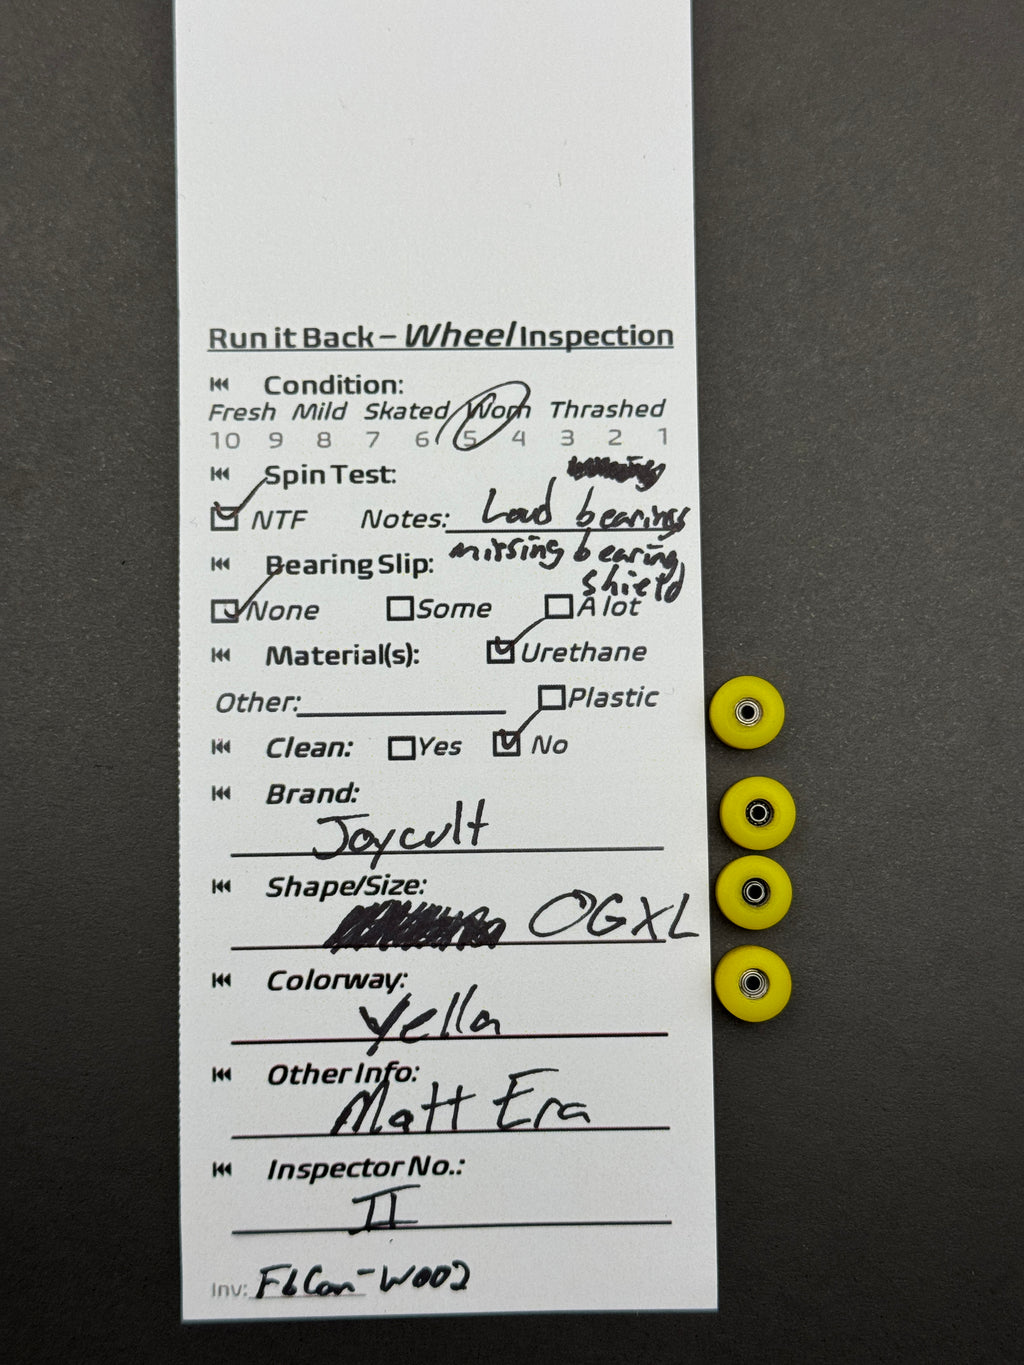 Run it Back – Wheel Inspection
Condition:
Fresh Mild Skated Worn Thrashed
10 9 8 7 6 5 4 3 2 1
Spin Test:
NTF Notes: Loud bearings
missing bearing
shield
Bearing Slip:
None Some A lot
Material(s): Urethane
Other: Plastic
Clean: Yes No
Brand:
Joycult
Shape/Size:
OGXL
Colorway:
Yella
Other Info:
Matt Era
Inspector No.:
II
Inv: FbCon-W002